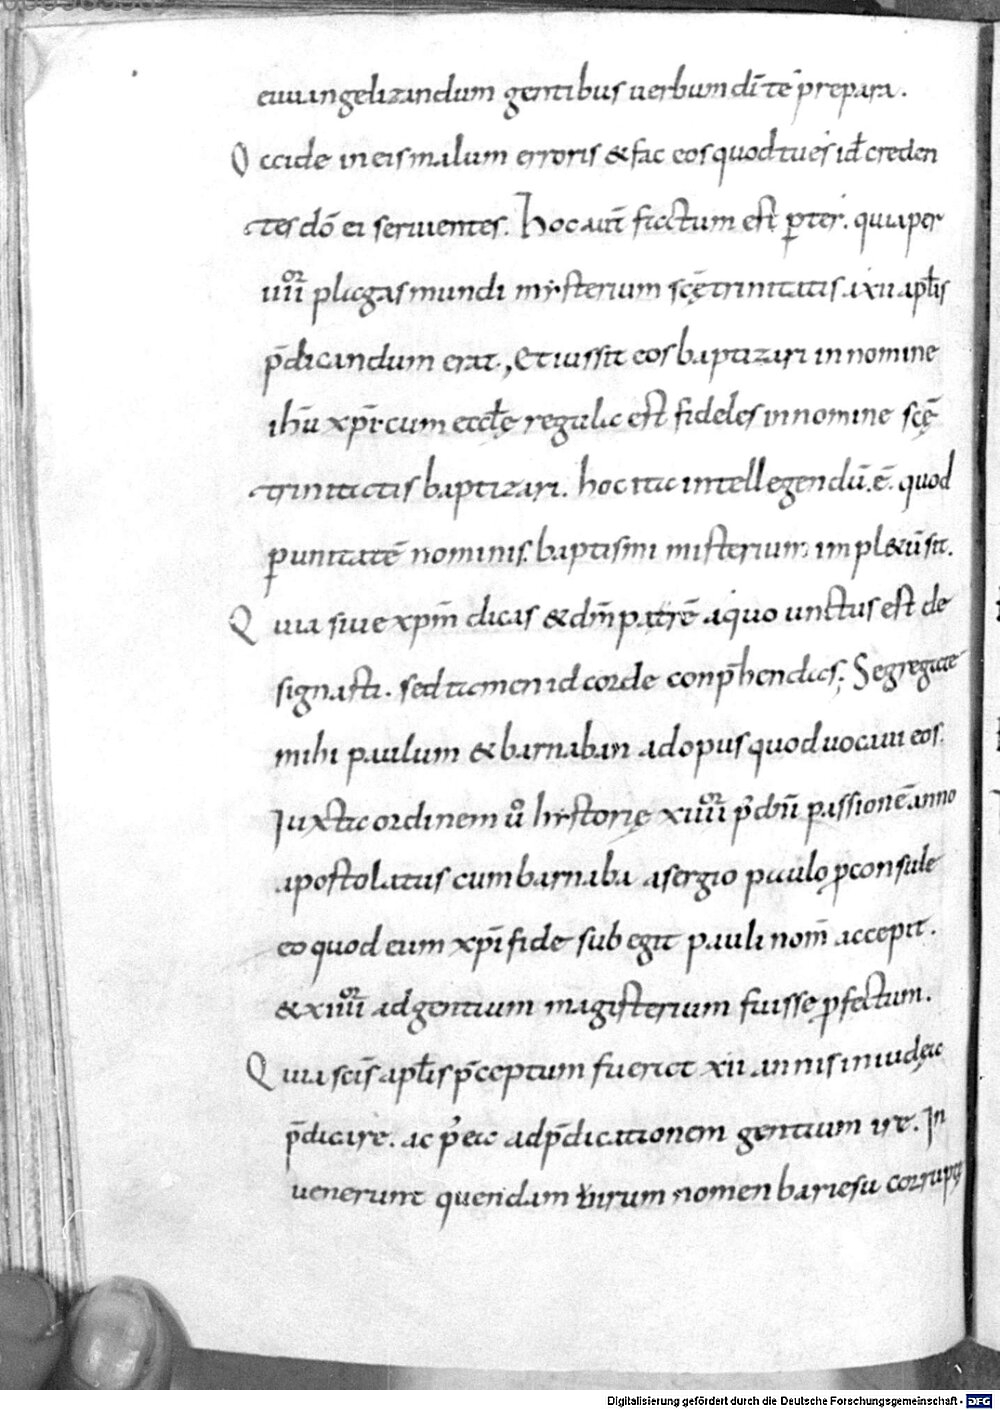 euuangelizandum gentibus uerbum dī te prepara.
Occide in eis malum erroris & fac eos quod tu es id ē creden
tes dō ei seruientes. Hoc aut̄ factum est ꝑter. quia per
iiiior plagas mundi mysterium scę trinitatis a xii apłis
p̄dicandum erat, Et iussit eos baptizari in nomine
ihū xp̄i cum ecclę regula est fideles in nomine scę
trinitatis baptizari. hoc ita intellegendū. ē. quod
ꝑ unitatē nominis baptismi misterium impl&ū sit.
Quia siue xp̄m dicas & dm̄ patrē a quo unctus est de
signasti. sed tamen id corde conp̄hendas; Segregate
mihi paulum & barnaban ad opus quod uocaui eos.
Iuxta ordinem u͛o hystorię xiiiior p̓ dnī passionē anno
apostolatus cum barnaba a sergio paulo ꝓconsule
eo quod eum xp̄i fide subegit pauli nom̄ accepit.
& xiiiior ad gentium magisterium fuisse ꝓfectum.
Quia scīs apłis p̄ceptum fuerat xii annis in iudęa
p̄dicare. ac p̓ ea ad p̄dicationem gentium ire. In
uenerunt quendam uirum nomen bariesu corrupte
Digitalisierung gefördert durch die Deutsche Forschungsgemeinschaft - DFG